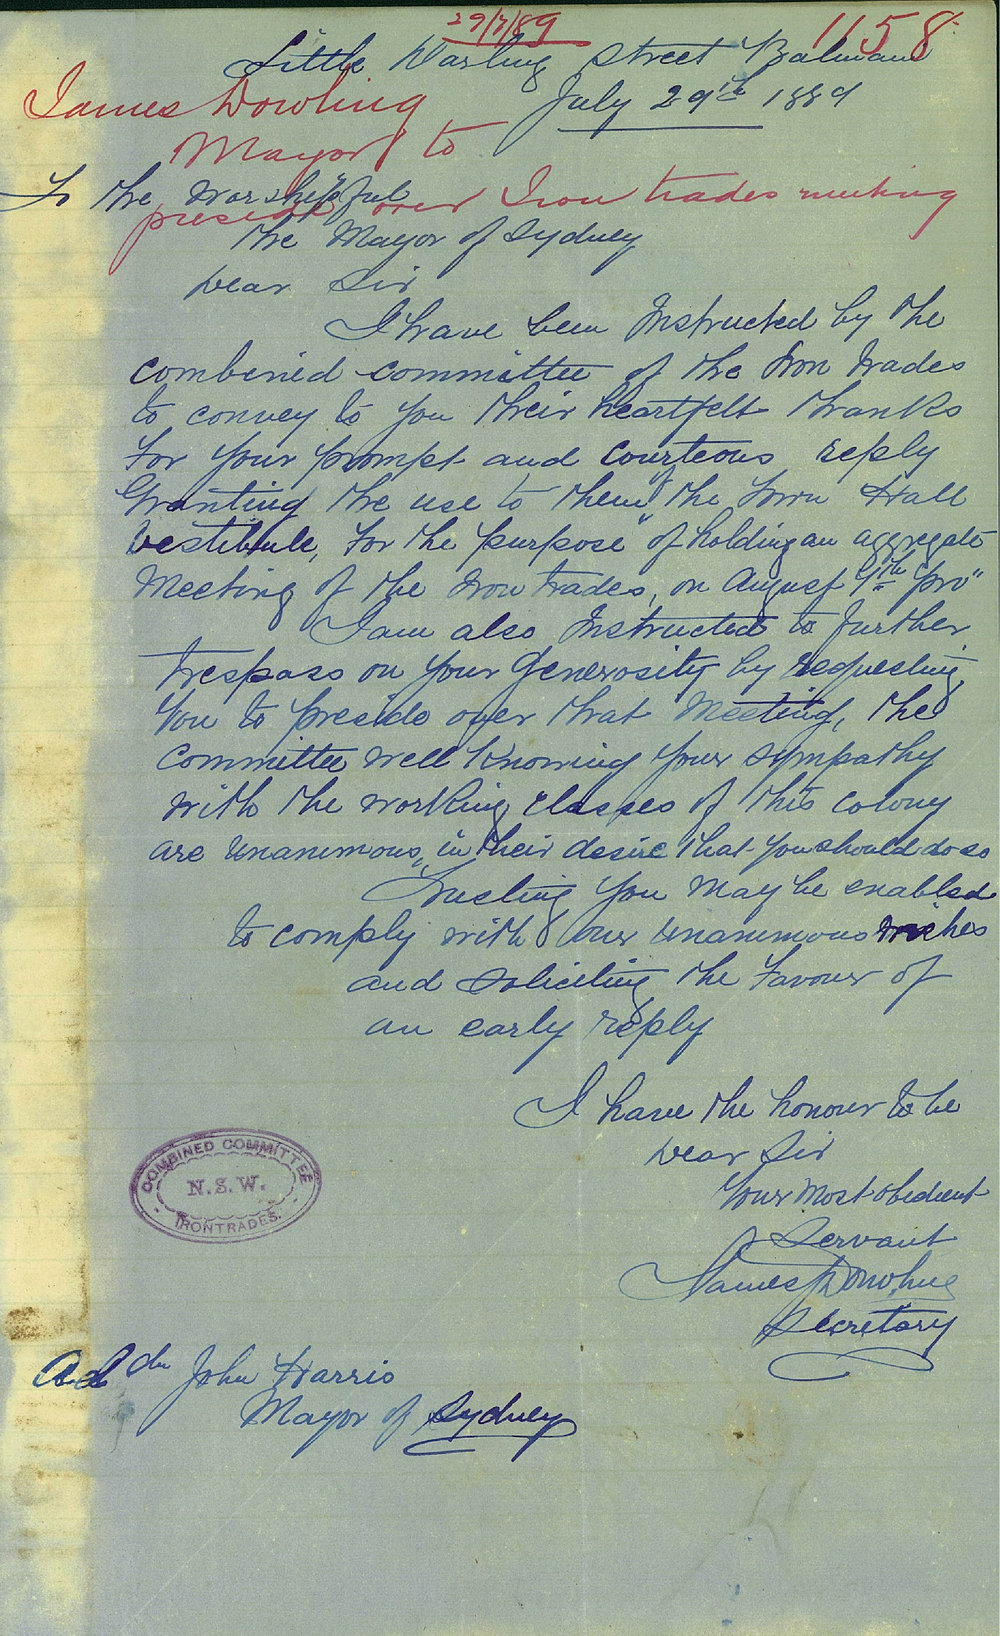 29/7/89
1158
Little Darling Street Balmain
James Dowling
July 29th 1889
Mayor to
To the Worshipful
preside over Iron trades meeting
the Mayor of Sydney
Dear Sir
I have been Instructed by the
combined committee of the Iron Trades
to convey to you their heartfelt thanks
For your prompt and courteous reply
Granting the use to them of the Town Hall
Vestibule, For the purpose of holding an aggregate
Meeting of the Iron trades, on August 9th pro"
I am also Instructed to further
trespass on your Generosity by requesting
You to preside over that Meeting, the
Committee well Knowing your sympathy
with the working classes of this colony
are unanimous, in their desire that you should do so
Trusting you may be enabled
to comply with our unanimous wishes
and soliciting the Favour of
an early reply
I have the honour to be
Dear Sir
Your Most obedient
Servant
James Dowling
Secretary
COMBINED COMMITTEE
N.S.W.
IRONTRADES.
John Harris
Mayor of Sydney